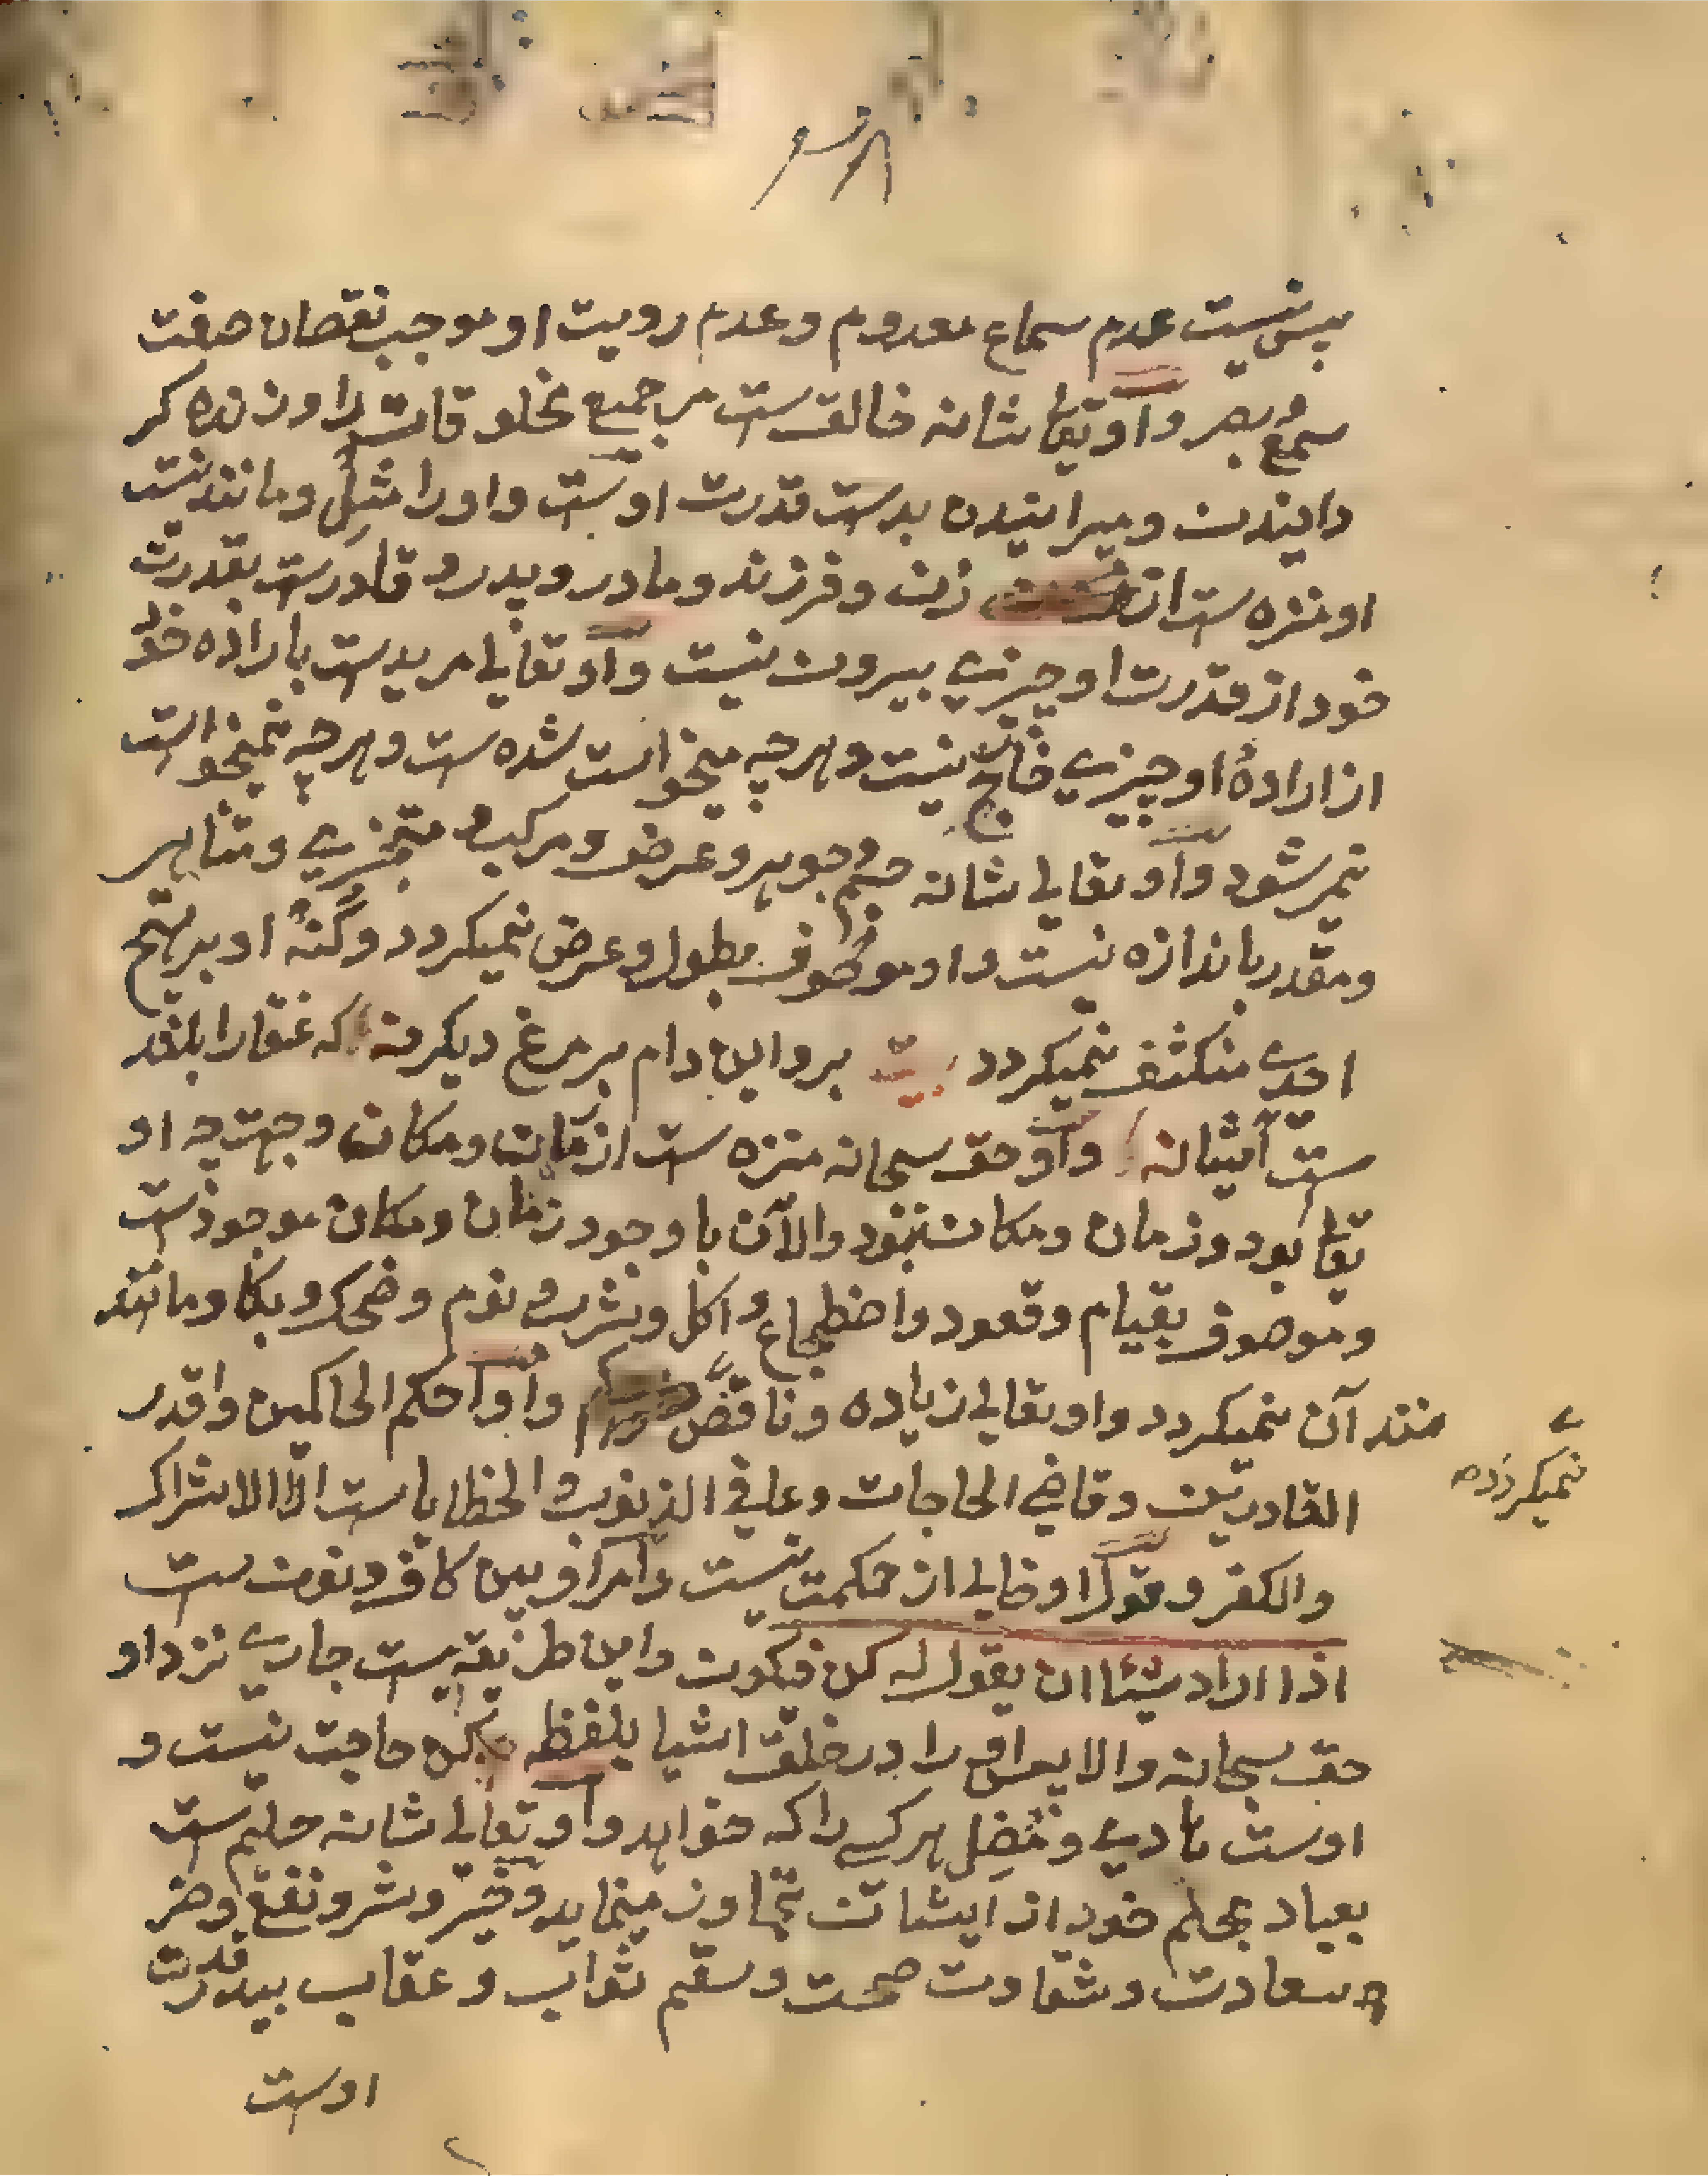 پس نیست عدم سماع معدوم و عدم رویت او موجب نقصان صفت
سمع و بصر و او تعالی شانه خالق ست مر جمیع مخلوقات را و زنده کر
دانیدن و میرانیدن بدست قدرت اوست و او را مثل و مانند نیست
او منزه ست از زن و فرزند و مادر و پدر و قادرست بقدرت
خود از قدرت او چیزی بیرون نیست و او تعالی مریدست باراده خود
از ارادهٔ او چیزی خارج نیست و هرچه میخواست شده ست و هرچه نمیخواست
نمیشود و او تعالی شانه جسم و جوهر و عرض و مرکب و متجزی و متناهی
و مقدر باندازه نیست و او موصوف بطول و عرض نمیکردد و کنه او بر هیچ
احدی منکشف نمیکردد بیت برو این دام بر مرغ دیکر نه که عنقا را بلند
ست آشیانه و او حق سبحانه منزه ست از زمان و مکان و جهت چه او
تعالی بود و زمان و مکان نبود و الآن با وجود زمان و مکان موجودست
و موصوف بقیام و قعود و اضطجاع و اکل و شرب و نوم و ضحک و بکا و مانند
مانند آن نمیکردد و او تعالی زیاده و ناقص و او احکم الحاکمین و اقدر
نمیکردد صح
القادرین و قاضی الحاجات و عافی الذنوب و الخطایا ست الّا الاشراک
والکفر و قول او خالی از حکمت نیست و امر او بین کاف و نون ست
اذا اراد شیئا ان یقول له کن فیکون و این طریقه ایست جاری نزد او
حق سبحانه والا او را در خلقت اشیا بلفظ کن حاجت نیست و
اوست هادی و مُضِل هر کسی را که خواهد و او تعالی شانه حلیم ست
بعباد بحلم خود از ایشان تجاوز مینماید و خیر و شر و نفع و ضر
و سعادت و شقاوت صحت و سقم ثواب و عقاب بید قدرت
اوست